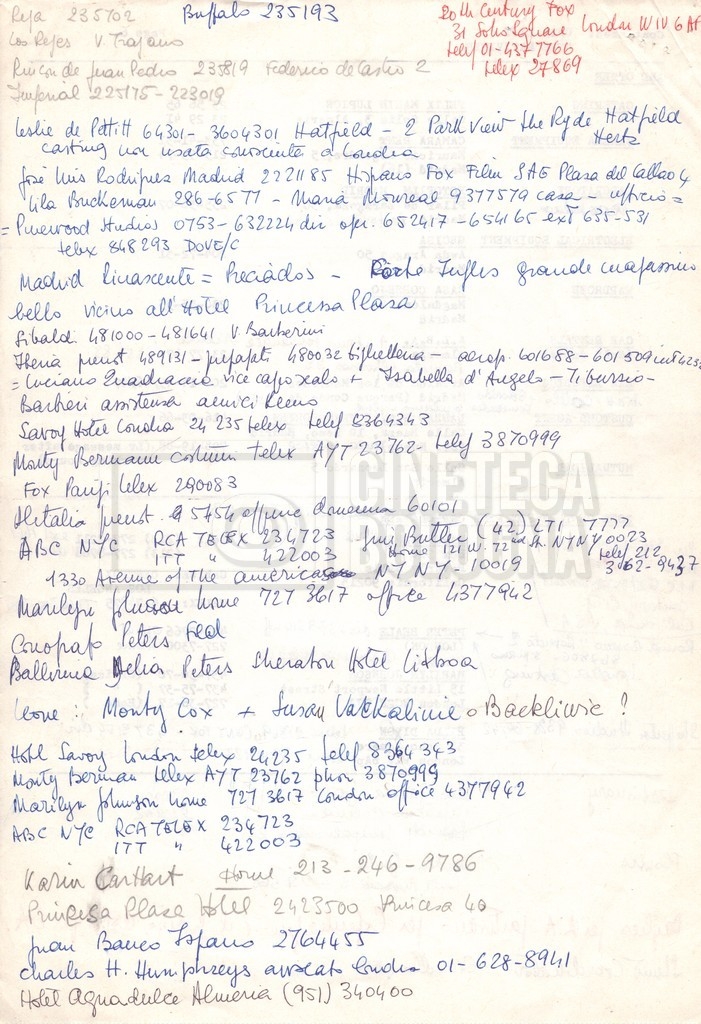 Reja 235702 Buffalo 235193
20th Century Fox
31 Soho Square London W1V 6AP
telef 01-4377766
telex 27869
Los Rejes V Trajano
Rincon de Juan Pedro 235819 Federico de Castro 2
Imperial 225175-223019
Leslie de Pettitt 64301-3604301 Hatfield - 2 Park View the Ryde Hatfield
Hertz
casting non usata conosciuta a Londra
José Luis Rodriguez Madrid 2221185 Hispano Fox Film SAE Plasa del Callao 4
Lila Buckeman 286-6577 - Mana Monreal 9377579 casa - ufficio =
= Pinewood Studios 0753-632224 dir oper. 652417-654165 ext 635-531
telex 848293 DOVE/C
Madrid Rinascente = Preciàdos - Ingles grande
bello vicino all'Hotel Princessa Plasa
Sibaldi 481000-481641 V Barberini
Iberia prenot 489131- 480032 biglietteria - aerop. 601688-601509 int 4235
= Luciano vice caposcalo + Isabella d'Angelo - Tibursio-
Barbieri assistensa amici Remo
Savoy Hotel Londra 24235 telex telef 8364343
Monty Bermann costumi telex AYT 23762- telef 3870999
Fox Parigi telex 290083
Alitalia prenot. 5454 oppure 60101
ABC NYC RCA TELEX 234723 Butler (42) LTI 7777
ITT " 422003 Home 121 W. 72nd St. NY NY 0023
telef 212
362-9437
1330 Avenue of the americas NY NY - 10019
Marilyn Johnson home 727 3617 office 4377942
Peters Fred
Ballerina Delia Peters Sheraton Hotel Lisboa
Leone : Monty Cox + Susan o Backlinie ?
Hotel Savoy London telex 24235 telef 8364343
Monty Berman telex AYT 23762 phon 3870999
Marilyn Johnson home 727 3617 London office 4377942
ABC NYC RCA TELEX 234723
ITT " 422003
Karin Carhart Home 213-246-9786
Princesa Plasa Hotel 2423500 Princesa 40
Juan Banco Ispano 2764455
Charles H. Humphreys avvocato londra 01-628-8941
Hotel Aguadulce Almeria (951) 340400
CINETECA
BOLOGNA